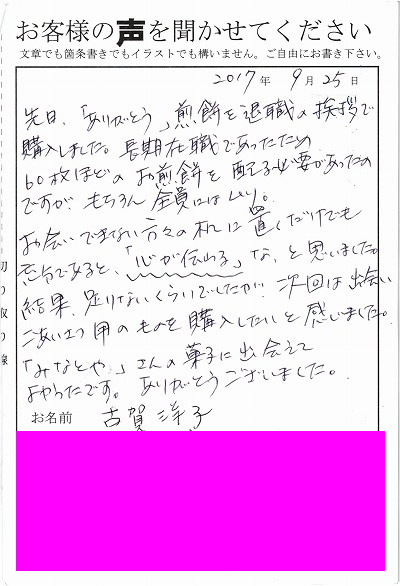 お客様の声を聞かせてください
文章でも箇条書きでもイラストでも構いません。ご自由にお書き下さい。
2017年 9月25日
先日、「ありがとう」煎餅を退職の挨拶で
購入しました。長期在職であったため
60枚ほどのお煎餅を配る必要があったの
ですが もちろん 全員にはムリ。
お会いできない方々の机に置くだけでも
充分であると、「心が伝わる」な、と思いました。
結果、足りないくらいでしたが 次回は出会い
ごあいさつ用のものを購入したいと感じました。
「みなとや」さんの菓子に出会えて
よかったです。ありがとうございました。
切り取り線
お名前 古賀洋子